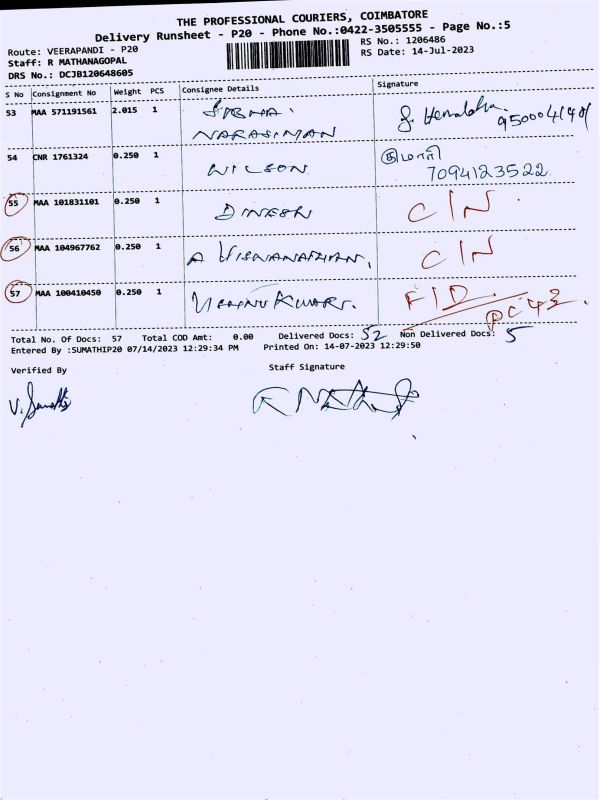 THE PROFESSIONAL COURIERS, COIMBATORE
Delivery Runsheet - P20 - Phone No.:0422-3505555 - Page No.:5
Route: VEERAPANDI - P20
RS No.: 1206486
Staff: R MATHANAGOPAL
RS Date: 14-Jul-2023
DRS No.: DCJB120648605
S No Consignment No Weight PCS Consignee Details Signature
53 MAA 571191561 2.015 1
NARASIMAN
54 CNR 1761324 0.250 1 WILSON
7094123522
55 MAA 101831101 0.250 1 DINESH C/N
56 MAA 104967762 0.250 1 A VISWANATHAN, C/N
57 MAA 100410450 0.250 1 VISHNU KUMAR. F/D.
PC43.
Total No. Of Docs: 57 Total COD Amt: 0.00 Delivered Docs: 52 Non Delivered Docs: 5
Entered By :SUMATHIP20 07/14/2023 12:29:34 PM Printed On: 14-07-2023 12:29:50
Verified By Staff Signature
V. Sumathi